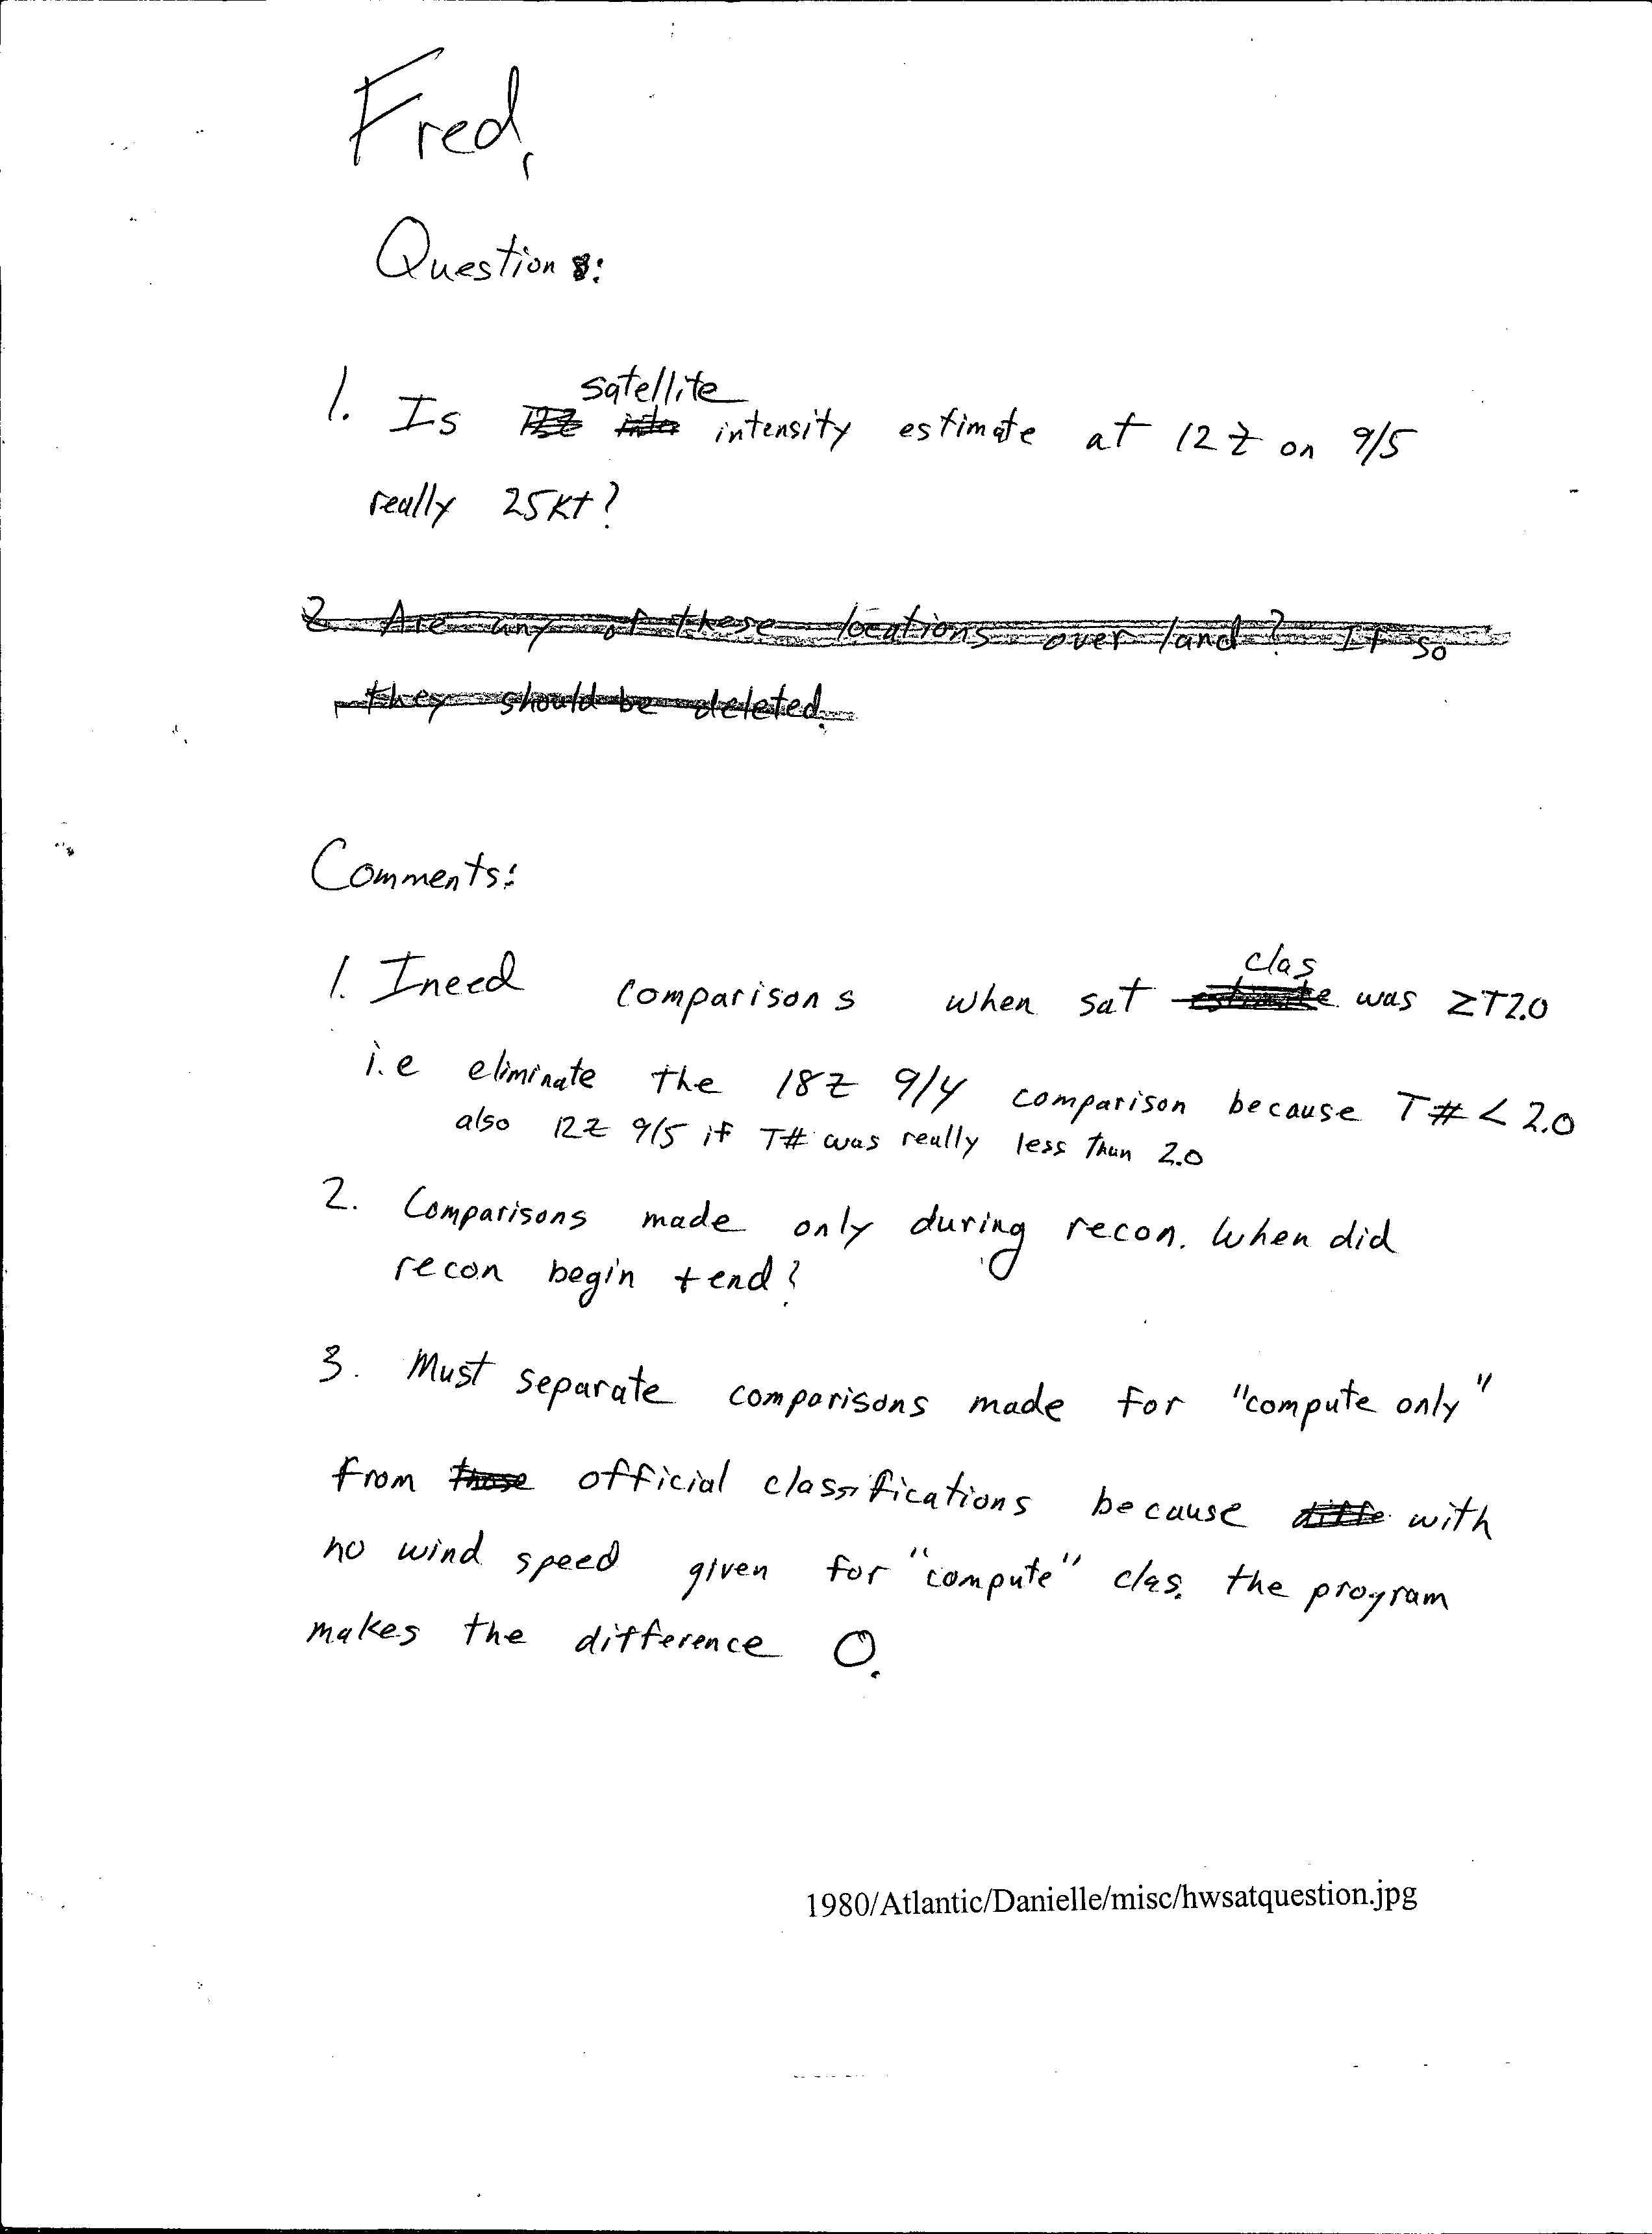 Fred,
Question s:
satellite
1. Is 12Z inte intensity estimate at 12Z on 9/5
really 25kt?
2. Are any of these locations over land? If so
they should be deleted.
Comments:
clas
1. I need comparisons when sat estimate was ≥T2.0
i.e eliminate the 18Z 9/4 comparison because T# < 2.0
also 12Z 9/5 if T# was really less than 2.0
2. Comparisons made only during recon. When did
recon begin + end?
3. Must separate comparisons made for "compute only"
from those official classifications because diffe with
no wind speed given for "compute" clas. the program
makes the difference 0.
1980/Atlantic/Danielle/misc/hwsatquestion.jpg